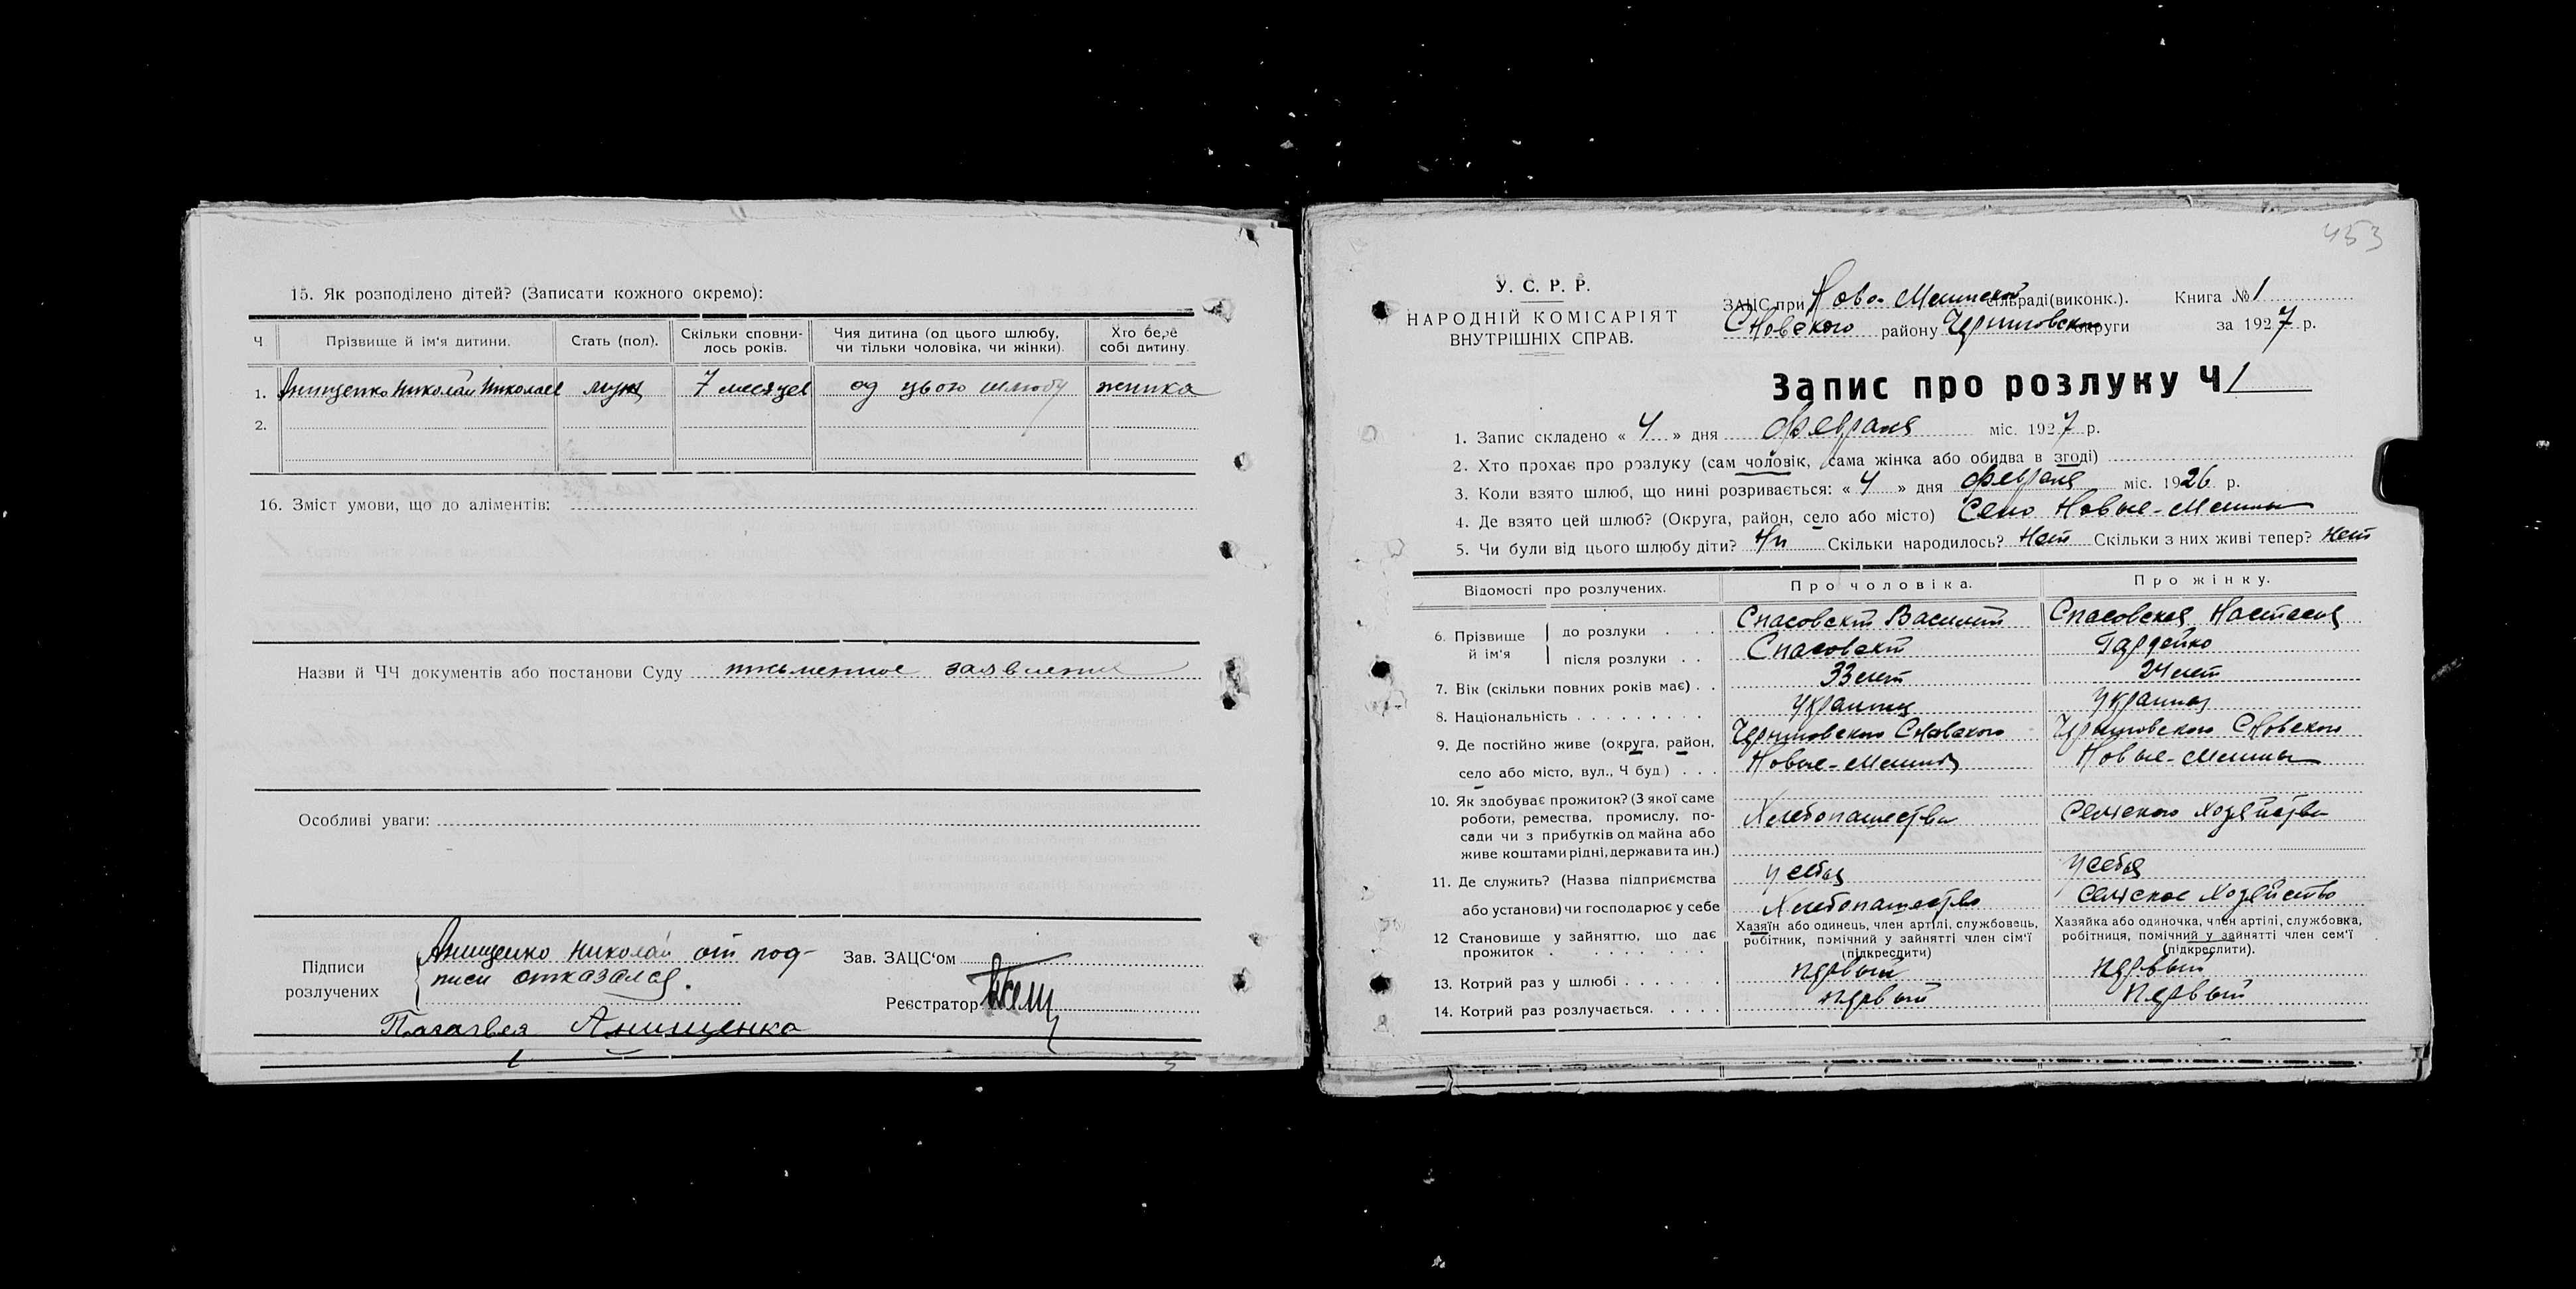 15. Як розподілено дітей? (Записати кожного окремо):
Ч Прізвище й ім'я дитини. Стать (пол). Скільки сповни-лось років. Чия дитина (од цього шлюбу, чи тільки чоловіка, чи жінки). Хто бере собі дитину.
1. Анищенко Николай Николаев муж 7 месяцев од цього шлюбу жинка
2.
16. Зміст умови, що до аліментів:
Назви й ЧЧ документів або постанови Суду письменное заявление
Особливі уваги:
Підписи розлучених
Анищенко Николай от под-
писи отказался.
Анищенко
Зав. ЗАЦС'ом
Реєстратор
453
У. С. Р. Р.
НАРОДНІЙ КОМІСАРІЯТ
ВНУТРІШНІХ СПРАВ.
ЗАЦС при Ново-Менской сільраді (виконк.). Книга № 1
Сновского району Черниговской округи за 1927 р.
Запис про розлуку Ч 1
1. Запис складено « 4 » дня февраля міс. 1927 р.
2. Хто прохає про розлуку (сам чоловік, сама жінка або обидва в згоді)
3. Коли взято шлюб, що нині розривається: « 4 » дня февраля міс. 1926 р.
4. Де взято цей шлюб? (Округа, район, село або місто) Село Новые-Млины
5. Чи були від цього шлюбу діти? Ни Скільки народилось? Нет Скільки з них живі тепер? нет
Відомості про розлучених. Про чоловіка. Про жінку.
6. Прізвище й ім'я до розлуки Спасовский Василий Спасовская Настасия
після розлуки Спасовский Гардейко
7. Вік (скільки повних років має) 33 лет 24 лет
8. Національність украинец украинка
9. Де постійно живе (округа, район, Черниговского Сновского Черниговского Сновского
село або місто, вул., Ч буд) Новые-Млины Новые-Млины
10. Як здобуває прожиток? (З якої саме
роботи, ремества, промислу, по- Хлебопашества Сельского хозяйства
сади чи з прибутків од майна або
живе коштами рідні, держави та ин.)
11. Де служить? (Назва підприємства у себя у себя
або установи) чи господарює у себе Хлебопашество сельское хозяйство
12 Становище у зайняттю, що дає прожиток
Хазяїн або одинець, член артілі, службовець,
робітник, помічний у зайнятті член сім'ї
(підкреслити)
Хазяйка або одиночка, член артілі, службовка,
робітниця, помічний у зайнятті член сем'ї
(підкреслити).
13. Котрий раз у шлюбі первый первый
14. Котрий раз розлучається. первый первый